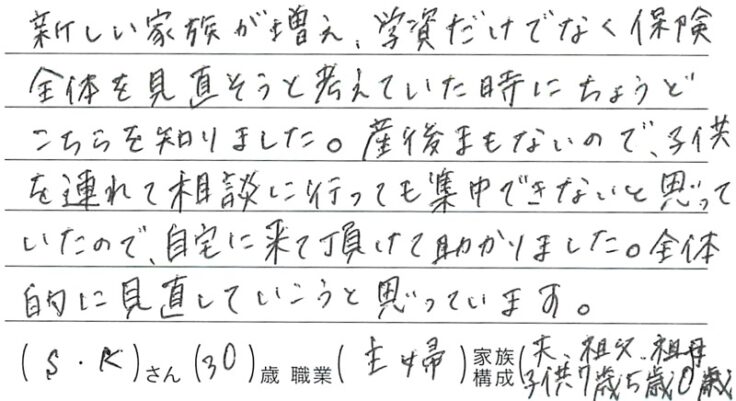 新しい家族が増え、学資だけでなく保険
全体を見直そうと考えていた時にちょうど
こちらを知りました。産後まもないので、子供
を連れて相談に行っても集中できないと思って
いたので、自宅に来て頂けて助かりました。全体
的に見直していこうと思っています。
(S・K)さん(30)歳 職業(主婦)家族構成(夫、祖父、祖母
子供7歳5歳0歳